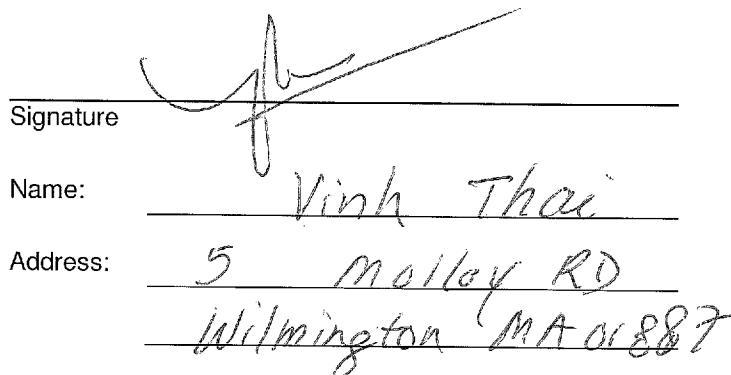 Signature
Name: Vinh Thai
Address: 5 Molloy RD
Wilmington MA 01887